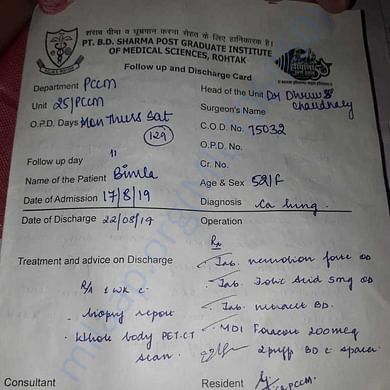 शराब पीना व धूम्रपान करना सेहत के लिए हानिकारक है।
PT. B.D. SHARMA POST GRADUATE INSTITUTE
OF MEDICAL SCIENCES, ROHTAK
Follow up and Discharge Card
Department PCCM
Head of the Unit Dr Dhruv
Chaudhary
Unit 25/PCCM
Surgeon's Name
O.P.D. Days Mon Thurs Sat
C.O.D. No. 75032
(129)
O.P.D. No.
Follow up day "
Cr. No.
Name of the Patient Bimla
Age & Sex 52/f
Date of Admission 17/8/19
Diagnosis Ca lung.
Date of Discharge 22/08/19
Operation
Rx
Treatment and advice on Discharge
Tab. forte OD
Tab. Folic Acid 5mg OD
R/A 1 wk c
Tab. BD.
- biopsy report
- MDI Foracort 200mcg
- Whole body PET-CT
scan.
2 puff BD c spacer.
Consultant
Resident